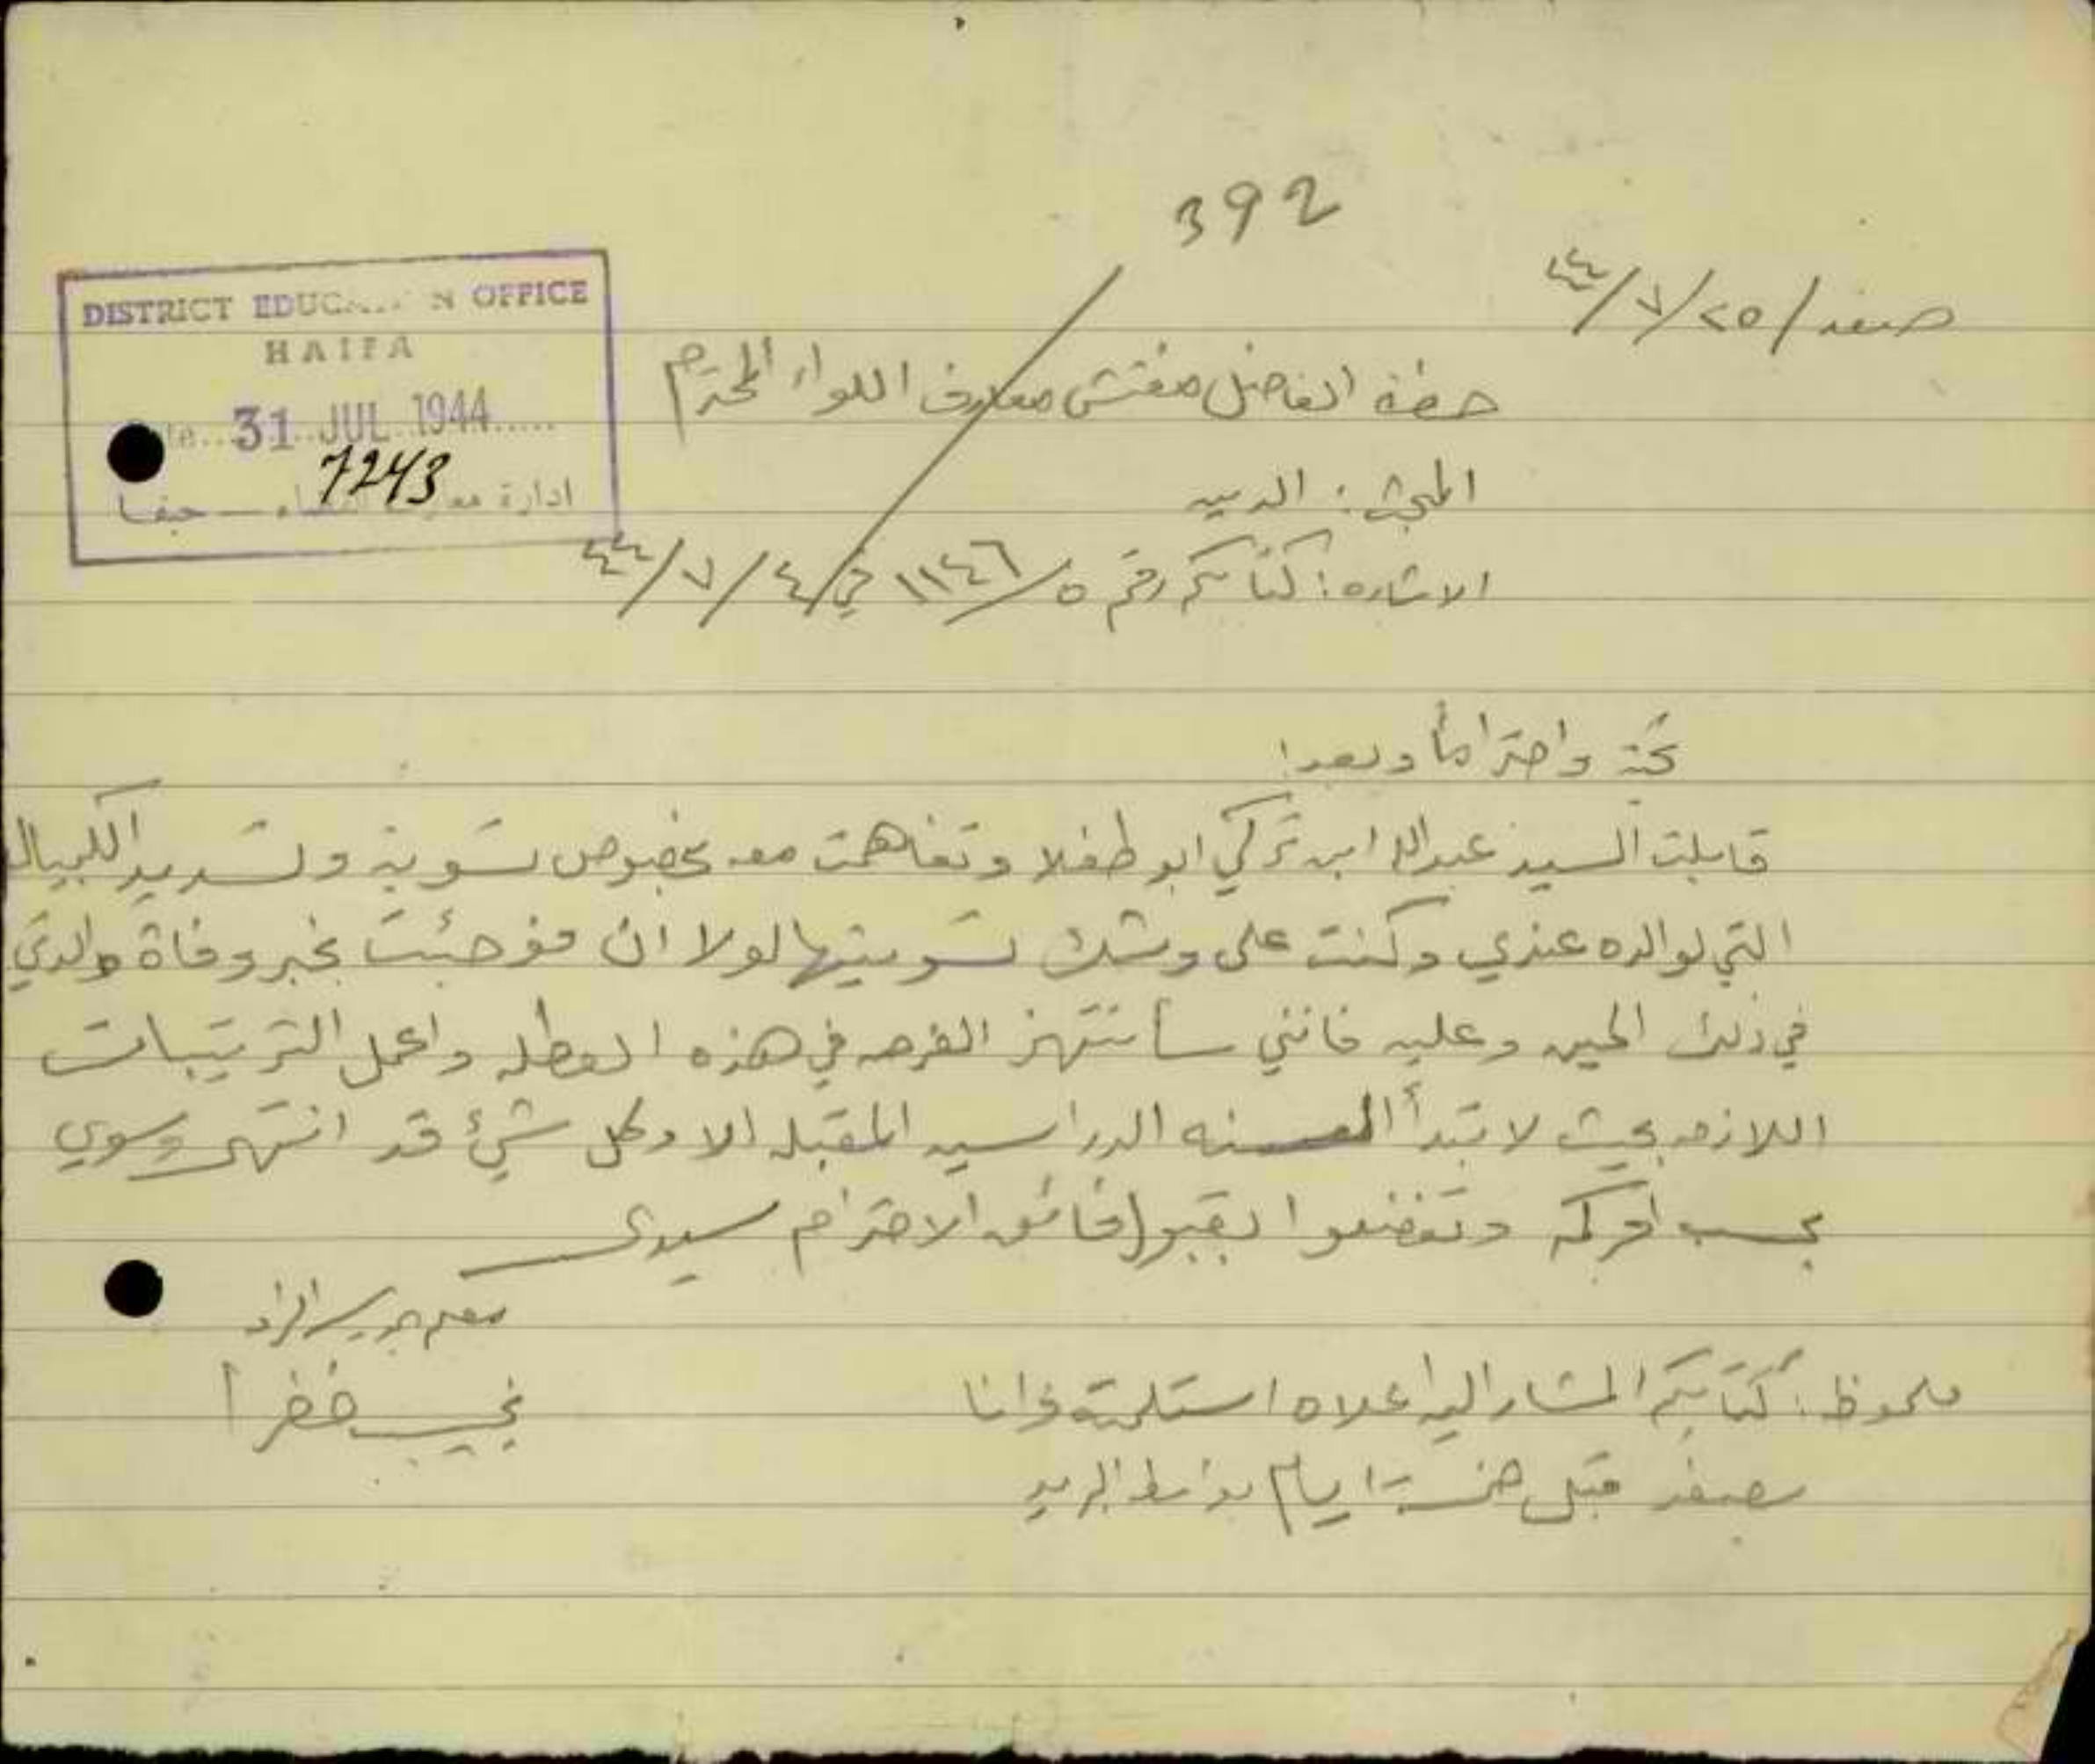 392
صفد / ٢٥/٧/٤٤
DISTRICT EDUCATION OFFICE
HAIFA
Date.. 31 JUL 1944.....
7243
ادارة معارف اللواء — حيفا
حضرة الفاضل مفتش معارف اللواء المحترم
المبحث: الدين
الاشاره: كتابكم رقم ٥/١١٤٦ في ٤/٧/٤٤
تحية واحتراماً وبعد:
قابلت السيد عبدالله ابن تركي ابو طفلا وتفاهمت معه بخصوص تسوية وتسديد الكمبيال
التي لوالده عندي وكنت على وشك تسويتها لولا ان فوجئت بخبر وفاة والدي
في ذلك الحين وعليه فانني سأنتهز الفرصه في هذه العطله واعمل الترتيبات
اللازمه بحيث لا تبدأ السنه الدراسيه المقبله الا وكل شيء قد انتهى وسوي
بحسب امركم وتفضلوا بقبول فائق الاحترام سيدي
معلم
نجيب خضرا
ملحوظ: كتابكم المشار اليه اعلاه استلمته وانا
بصفد قبل خمسة ايام بواسطة البريد